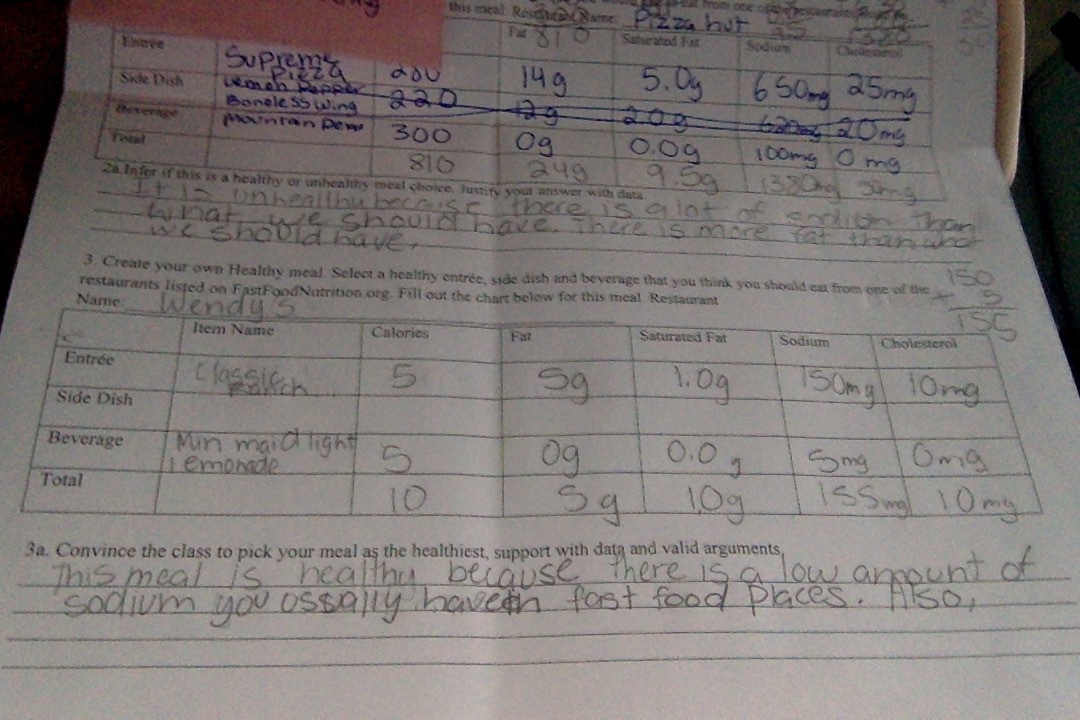 this meal. Restaurant Name: Pizza hut
Entrée Fat 810 Saturated Fat Sodium Cholesterol
Supreme Pizza 14g 5.0g 650mg 25mg
Side Dish Lemon Pepper Boneless Wing 220 20mg
Beverage Mountain Dew 300 0g 0.0g 100mg 0mg
Total 810 24g 9.5g
2a. Infer if this is a healthy or unhealthy meal choice. Justify your answer with data
It is unhealthy because there is a lot of than
what we should have. There is more fat than what
we should have.
3. Create your own Healthy meal. Select a healthy entrée, side dish and beverage that you think you should eat from one of the
restaurants listed on FastFoodNutrition.org. Fill out the chart below for this meal. Restaurant
Name: Wendy's
150
+ 5
155
Item Name Calories Fat Saturated Fat Sodium Cholesterol
Entrée 5 5g 1.0g 150mg 10mg
Side Dish
Beverage Min maid light lemonade 5 0g 0.0g 5mg 0mg
Total 10 5g 1.0g 155mg 10mg
3a. Convince the class to pick your meal as the healthiest, support with data and valid arguments.
This meal is healthy because there is a low amount of
sodium you ossally have in fast food places. Also,